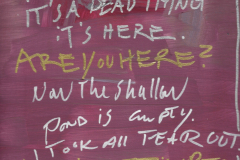 IT'S A DEAD THING
IT'S HERE.
ARE YOU HERE?
Now The Shallow
POND IS EMPTY.
I TOOK ALL TEAR OUT.